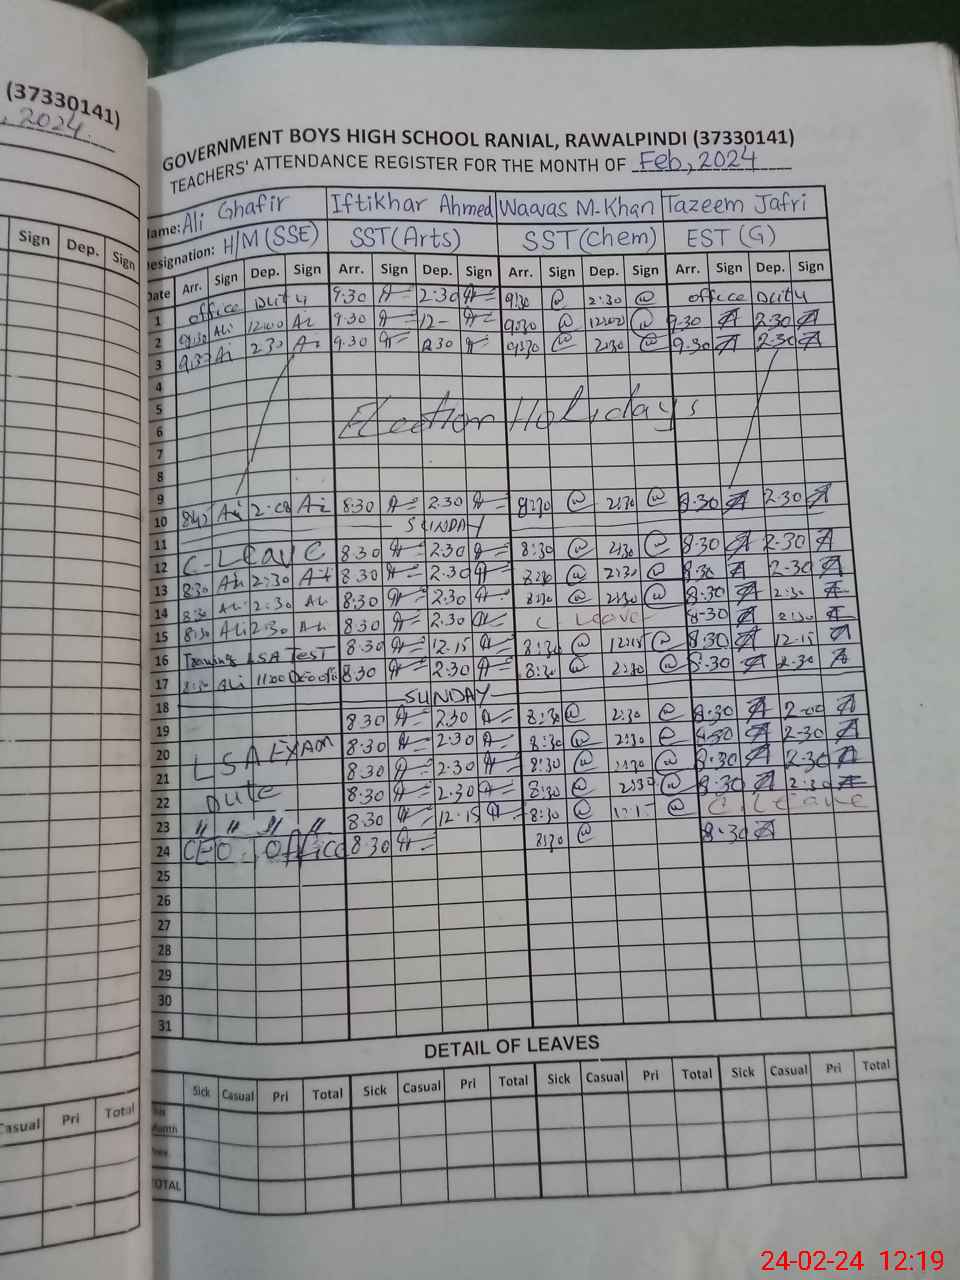 (37330141)
, 2024.
GOVERNMENT BOYS HIGH SCHOOL RANIAL, RAWALPINDI (37330141)
TEACHERS' ATTENDANCE REGISTER FOR THE MONTH OF Feb, 2024
Name: Ali Ghafir Iftikhar Ahmed Waqas M. Khan Tazeem Jafri
Designation: H/M (SSE) SST (Arts) SST (Chem) EST (G)
Sign Dep. Sign
Date Arr. Sign Dep. Sign Arr. Sign Dep. Sign Arr. Sign Dep. Sign Arr. Sign Dep. Sign
1 office Duty 9:30 2:30 9:30 2:30 office Duty
2 9:30 Ali 12:00 9.30 12- 9:30 12:00 9.30 2.30
3 9:30 2:30 9.30 2.30 9:30 2:30 9.30 2.30
4
5 Election Holidays
6
7
8
9
10 2.00 8.30 2.30 8:30 2:30 8.30 2.30
11 SUNDAY
12 C-Leave 8.30 2.30 8:30 2:30 8.30 2.30
13 8:30 2:30 8.30 2.30 8:30 2:30 8.30 2.30
14 8:30 2:30 8:30 2:30 8:30 2:30 8.30 2:30
15 8:30 Ali 2:30 8.30 2.30 C Leave 8.30 2:30
16 Training LSA TEST 8.30 12.15 8:30 12:15 8.30 12.15
17 8:30 Ali 11:00 8.30 2.30 8:30 2:30 8.30 2.30
18 SUNDAY
19 8.30 2.30 8:30 2:30 8.30 2.00
20 LSA EXAM 8.30 2.30 8:30 2:30 8.30 2.30
21 8.30 2.30 8:30 2:30 8.30 2.30
22 Dute 8.30 2.30 8:30 2:30 8.30 2:30
23 " " " " 8.30 12.15 8:30 C Leave
24 CEO Office 8.30 8:30 8.30
25
26
27
28
29
30
31
DETAIL OF LEAVES
Casual Pri Total
Sick Casual Pri Total Sick Casual Pri Total Sick Casual Pri Total Sick Casual Pri Total
TOTAL
24-02-24 12:19